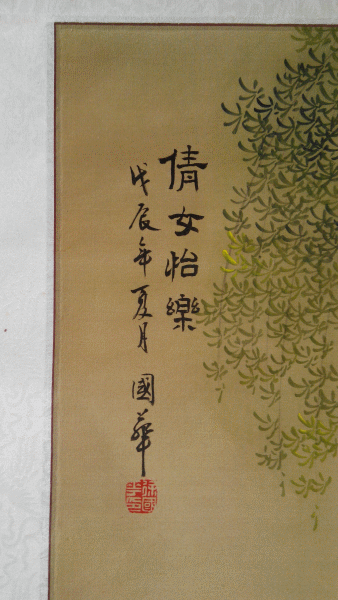 倩女怡樂
戊辰年夏月 國華